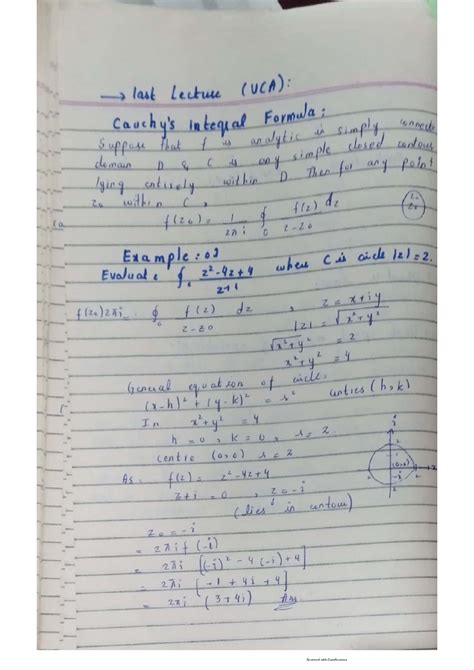 → last Lecture (VCA):
Cauchy's integral Formula:
Suppose that f is analytic in simply connecte
domain D & C is any simple closed contour
lying entirely within D Then for any point
z₀ within C,
f(z₀) = 1/2πi ∮c f(z)/z-z₀ dz
Example: 02
Evaluate ∮c z²-4z+4/z+i where C is circle |z|=2.
f(z₀)2πi = ∮c f(z)/z-z₀ dz , z = x+iy
|z| = √x²+y²
√x²+y² = 2
x²+y² = 4
General equation of circle
(x-h)² + (y-k)² = r² (h,k)
In x²+y² = 4
h=0, k=0, r=2
centre (0,0) r=2
As f(z) = z²-4z+4
z+i = 0 , z₀=-i
(lies in contour)
z₀ = -i
= 2πi f(-i)
= 2πi [(-i)² - 4(-i) + 4]
= 2πi [-1 + 4i + 4]
= 2πi (3+4i) Ans
(0,0)
-i
Scanned with CamScanner